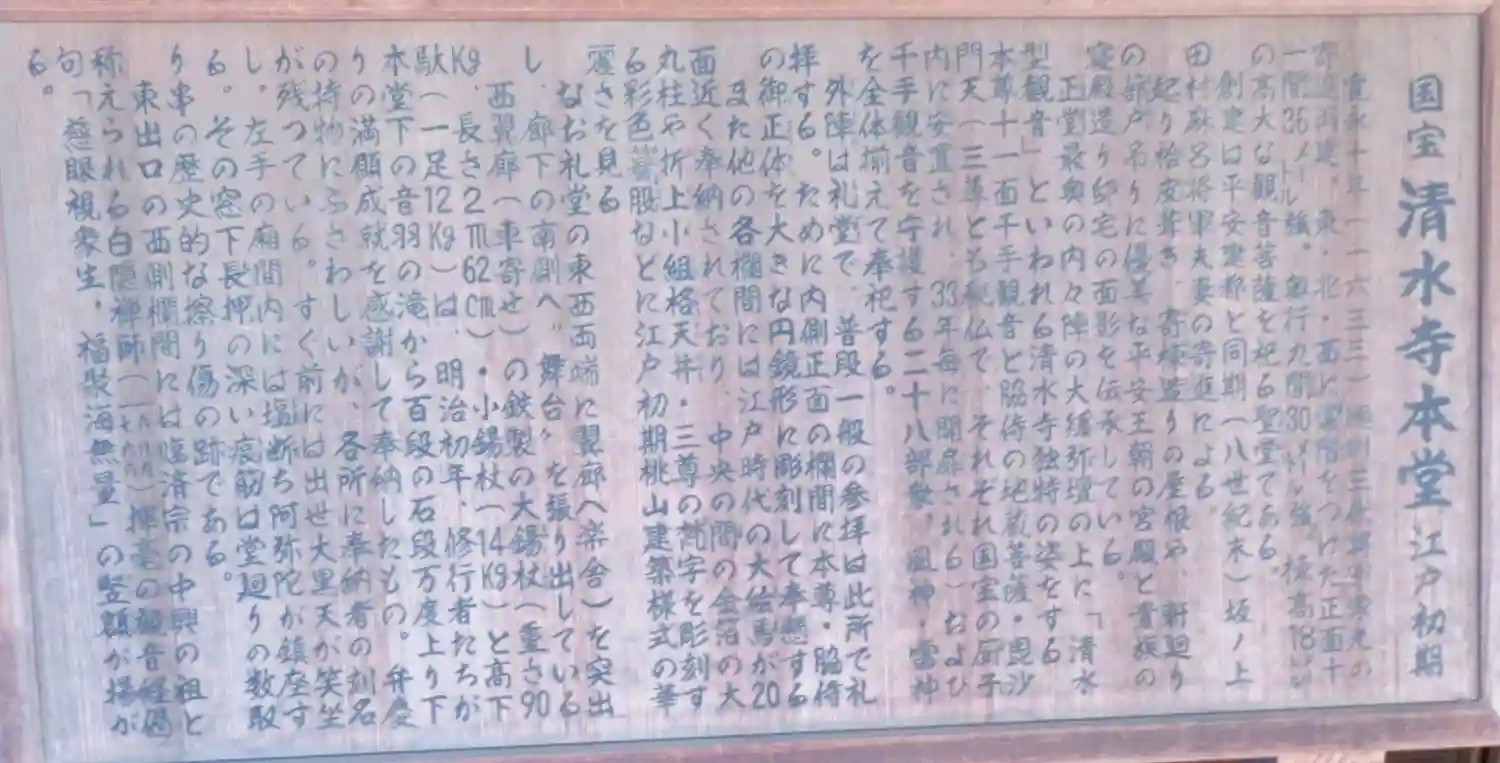 国宝 清水寺本堂 江戸初期
寛永十年(一六三三)徳川三代将軍家光の
再建。東・北・西に をつけた正面十
一間36メートル強、奥行九間30メートル強、棟高18メートル
の高大な観音菩薩を祀る聖堂である。
創建は平安奠都と同期(八世紀末)坂ノ上
田村麻呂将軍夫妻の寄進による。
桧皮葺き、寄棟造りの屋根や、軒廻り
の蔀戸吊りに優美な平安王朝の宮殿と貴族の
寝殿造り邸宅の面影を伝承している。
正堂最奥の内々陣の大須弥壇の上に「清水
型観音」といわれる清水寺独特の姿をする
本尊十一面千手観音と脇侍の地蔵菩薩・毘沙
門天(三尊とも秘仏で、それぞれ国宝の厨子
内に安置され、33年毎に開扉される)および
千手観音を守護する二十八部衆、風神・雷神
を全体揃えて奉祀する。
外陣は礼堂で、普段一般の参拝は此所で礼
拝する。ために内側正面の欄間に本尊・脇侍
の御正体を大きな円鏡形に彫刻して奉懸する
また他の各欄間には江戸時代の大絵馬が20
面近く奉納されており、中央の間の金箔の大
丸柱や折上小組格天井・三尊の梵字を彫刻す
る彩色蟇股などに江戸初期桃山建築様式の華
麗さを見る
なお礼堂の東西両端に翼廊(楽舎)を突出
し、廊下の南側へ“舞台”を張り出している
西翼廊(車寄せ)の鉄製の大錫杖(重さ90
Kg、長さ2m62cm)・小錫杖(14Kg)と高下
駄(一足12Kg)は、明治初年、修行者たちが
本堂下の音羽の滝から百段の石段万度上り下
りの満願成就を感謝して奉納したもの。弁慶
の持物にふさわしいが、各所に奉納者の刻名
が残っている。すぐ前には出世大黒天が笑坐
し。左手の廂間内には塩断ち阿弥陀が鎮座す
る。その窓下長押の深い痕筋は堂廻りの数取
り串の歴史的な擦り傷の跡である。
東出口の西側欄間には臨済宗の中興の祖と
称えられる白隠禅師( )揮毫の観音経偈
句「慈眼視衆生。福聚海無量」の竪額が揚が
る。